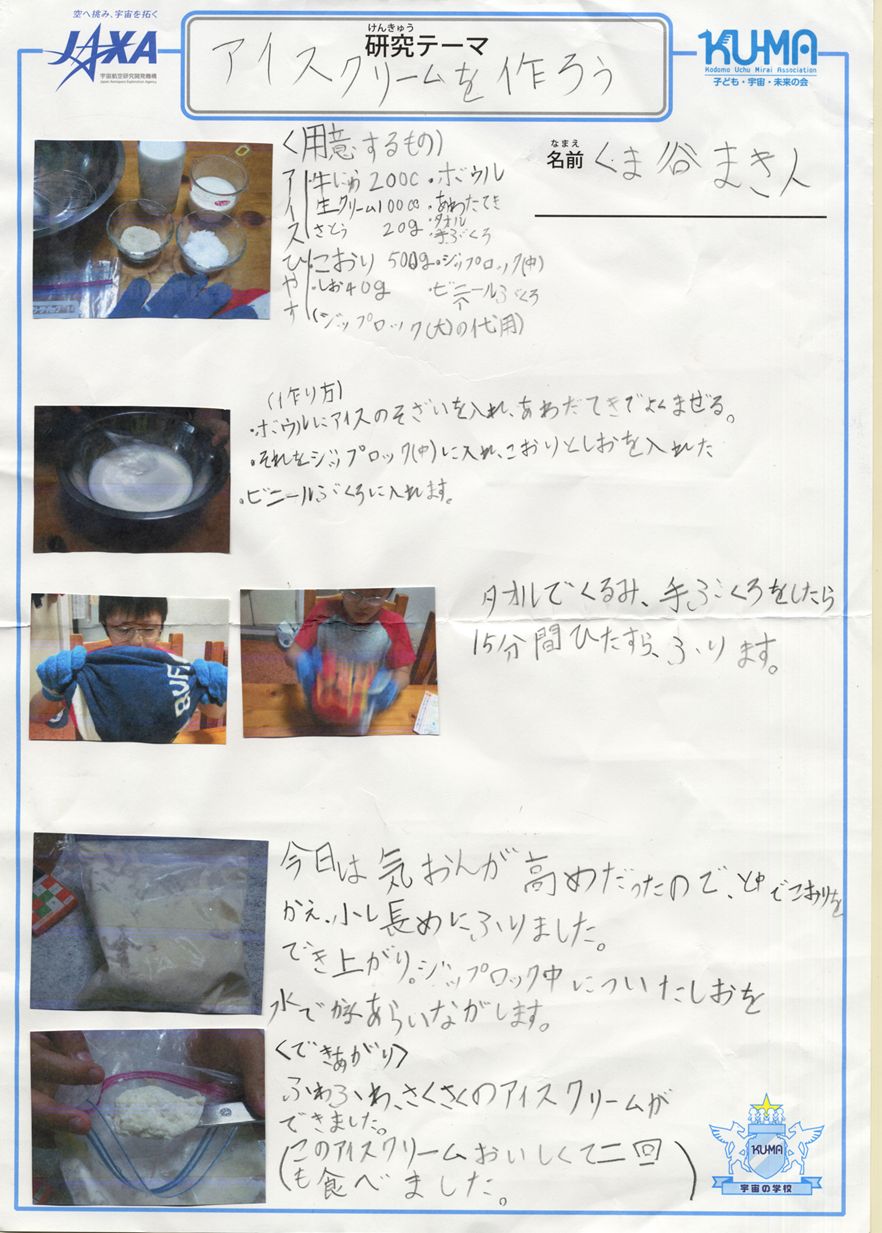 空へ挑み、宇宙を拓く
JAXA
宇宙航空研究開発機構
Japan Aerospace Exploration Agency
けんきゅう
研究テーマ
アイスクリームを作ろう
KU-MA
Kodomo Uchu Mirai Association
子ども・宇宙・未来の会
なまえ
名前 くま谷まき人
<用意するもの>
アイス
・牛にゅ 200C ・ボウル
生クリーム100cc ・あわたてき
・さとう 20g ・タオル
・手ぶくろ
ひやす
・こおり 500g ・ジップロック(中)
・しお40g ・ビニールぶくろ
(ジップロック(大)の代用)
(作り方)
・ボウルにアイスのそざいを入れ、あわだてきでよくまぜる。
・それをジップロック(中)に入れ、こおりとしおを入れた
・ビニールぶくろに入れます。
タオルでくるみ、手ぶくろをしたら
15分間ひたすら、ふります。
BUF
今日は気おんが高めだったので、と中でこおりを
かえ、少し長めにふりました。
でき上がり。ジップロック中についたしおを
水で あらいながします。
<できあがり>
ふわふわ、さくさくのアイスクリームが
できました。
(このアイスクリームおいしくて二回
も食べました。)
KUMA
宇宙の学校